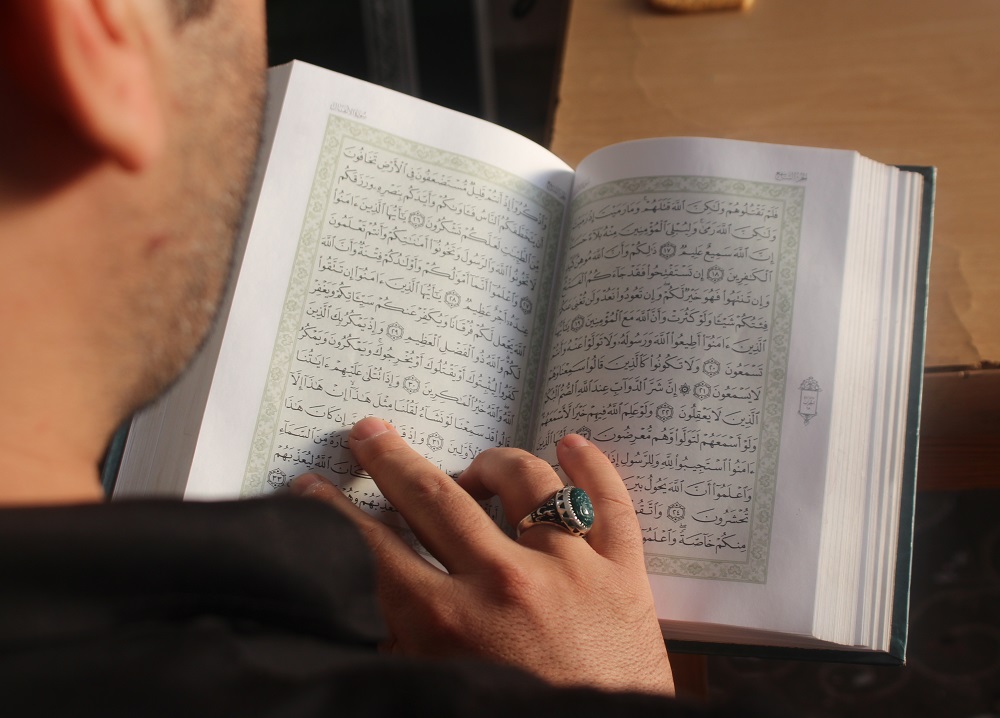 الجزء التاسع
فَلَمْ تَقْتُلُوهُمْ وَلَٰكِنَّ ٱللَّهَ قَتَلَهُمْ وَمَا رَمَيْتَ إِذْ
وَلَٰكِنَّ ٱللَّهَ رَمَىٰ وَلِيُبْلِيَ ٱلْمُؤْمِنِينَ مِنْهُ بَلَآءً
إِنَّ ٱللَّهَ سَمِيعٌ عَلِيمٌ ١٧ ذَٰلِكُمْ وَأَنَّ ٱللَّهَ مُوهِنُ
ٱلْكَٰفِرِينَ ١٨ إِن تَسْتَفْتِحُوا۟ فَقَدْ جَآءَكُمُ ٱلْفَتْحُ
وَإِن تَنتَهُوا۟ فَهُوَ خَيْرٌ لَّكُمْ وَإِن تَعُودُوا۟ نَعُدْ وَلَن تُغْنِيَ
فِئَتُكُمْ شَيْـًٔا وَلَوْ كَثُرَتْ وَأَنَّ ٱللَّهَ مَعَ ٱلْمُؤْمِنِينَ ١٩ يَٰٓأَيُّهَا
ٱلَّذِينَ ءَامَنُوٓا۟ أَطِيعُوا۟ ٱللَّهَ وَرَسُولَهُۥ وَلَا تَوَلَّوْا۟ عَنْهُ وَأَنتُمْ
تَسْمَعُونَ ٢٠ وَلَا تَكُونُوا۟ كَٱلَّذِينَ قَالُوا۟ سَمِعْنَا وَهُمْ
لَا يَسْمَعُونَ ٢١ ۞ إِنَّ شَرَّ ٱلدَّوَآبِّ عِندَ ٱللَّهِ ٱلصُّمُّ ٱلْبُكْمُ
ٱلَّذِينَ لَا يَعْقِلُونَ ٢٢ وَلَوْ عَلِمَ ٱللَّهُ فِيهِمْ خَيْرًا لَّأَسْمَعَهُمْ
وَلَوْ أَسْمَعَهُمْ لَتَوَلَّوا۟ وَّهُم مُّعْرِضُونَ ٢٣ يَٰٓأَيُّهَا ٱلَّذِينَ
ءَامَنُوا۟ ٱسْتَجِيبُوا۟ لِلَّهِ وَلِلرَّسُولِ إِذَا
وَٱعْلَمُوٓا۟ أَنَّ ٱللَّهَ يَحُولُ بَيْنَ
تُحْشَرُونَ ٢٤ وَٱتَّقُوا۟
مِنكُمْ خَآصَّةً وَٱعْلَمُوٓا۟
سورة الأنفال
وَٱذْكُرُوٓا۟ إِذْ أَنتُمْ قَلِيلٌ مُّسْتَضْعَفُونَ فِي ٱلْأَرْضِ تَخَافُونَ
أَن يَتَخَطَّفَكُمُ ٱلنَّاسُ فَـَٔاوَىٰكُمْ وَأَيَّدَكُم بِنَصْرِهِۦ وَرَزَقَكُم
مِّنَ ٱلطَّيِّبَٰتِ لَعَلَّكُمْ تَشْكُرُونَ ٢٦ يَٰٓأَيُّهَا ٱلَّذِينَ ءَامَنُوا۟
لَا تَخُونُوا۟ ٱللَّهَ وَٱلرَّسُولَ وَتَخُونُوٓا۟ أَمَٰنَٰتِكُمْ وَأَنتُمْ تَعْلَمُونَ
٢٧ وَٱعْلَمُوٓا۟ أَنَّمَآ أَمْوَٰلُكُمْ وَأَوْلَٰدُكُمْ فِتْنَةٌ وَأَنَّ ٱللَّهَ
عِندَهُۥٓ أَجْرٌ عَظِيمٌ ٢٨ يَٰٓأَيُّهَا ٱلَّذِينَ ءَامَنُوٓا۟ إِن تَتَّقُوا۟
ٱللَّهَ يَجْعَل لَّكُمْ فُرْقَانًا وَيُكَفِّرْ عَنكُمْ سَيِّـَٔاتِكُمْ وَيَغْفِرْ
لَكُمْ وَٱللَّهُ ذُو ٱلْفَضْلِ ٱلْعَظِيمِ ٢٩ وَإِذْ يَمْكُرُ بِكَ ٱلَّذِينَ
كَفَرُوا۟ لِيُثْبِتُوكَ أَوْ يَقْتُلُوكَ أَوْ يُخْرِجُوكَ وَيَمْكُرُونَ وَيَمْكُرُ
ٱللَّهُ وَٱللَّهُ خَيْرُ ٱلْمَٰكِرِينَ ٣٠ وَإِذَا تُتْلَىٰ عَلَيْهِمْ ءَايَٰتُنَا
قَالُوا۟ قَدْ سَمِعْنَا لَوْ نَشَآءُ لَقُلْنَا مِثْلَ هَٰذَآ إِنْ هَٰذَآ إِلَّآ
ٱلْأَوَّلِينَ ٣١ وَإِذْ إِن كَانَ هَٰذَا
مِّنَ ٱلسَّمَآءِ
كَانَ ٱللَّهُ لِيُعَذِّبَهُمْ
مُعَذِّبَهُمْ وَهُمْ ٣٣